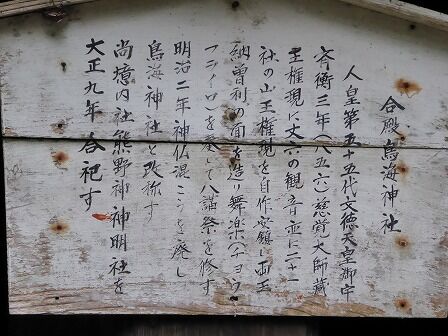 合殿鳥海神社
人皇第五十五代文徳天皇御宇
斉衡三年(八五六)慈覚大師蔵
王権現に丈六の観音並に二十一
社の山王権現を自作安鎮し両王
納曽利の面を造り舞楽(チョウ
クライロ)を奏して八講祭を修す
明治二年神仏混こうを廃し
鳥海神社と改称す
尚境内社熊野神神明社を
大正九年合祀す